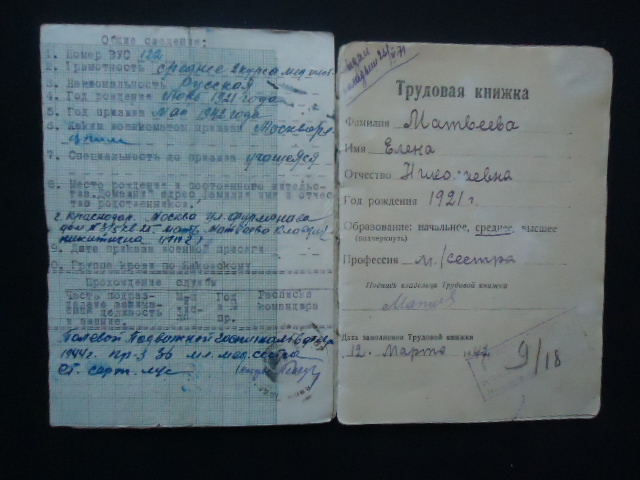 Общие сведения:
1. Номер ВУС 122
2. Грамотность среднее 2 курса мед инст.
3. Национальность Русская
4. Год рождения Июнь 1921 года
5. Год призыва Май 1942 года
6. Каким военкоматом призван Москворе
цким
7. Специальность до призыва учащаяся
8. Место рождения и постоянного жительс-
тва. Домашний адрес фамилия имя и отчес
тво родственников.
г. Краснодар. Москва ул. Фурманова
дом № 3/5 кв 25 мать Матвеева Клавдия
Никитична
9. Дата приказа военной присяги
0. Группа крови по Янковскому
Прохождение службы
Часть подраз-
деление занима-
емая должность
и звание.
Год
пр.
Расписка
командира
Полевой Подвижной Госпиталь
1944г. пр-з 36 мл. мед. сестра
Трудовая книжка
Фамилия Матвеева
Имя Елена
Отчество
Год рождения 1921 г.
Образование: начальное, среднее, высшее
(подчеркнуть)
Профессия м./сестра
Подпись владельца Трудовой книжки
Дата заполнения Трудовой книжки
12. Марта
9/18